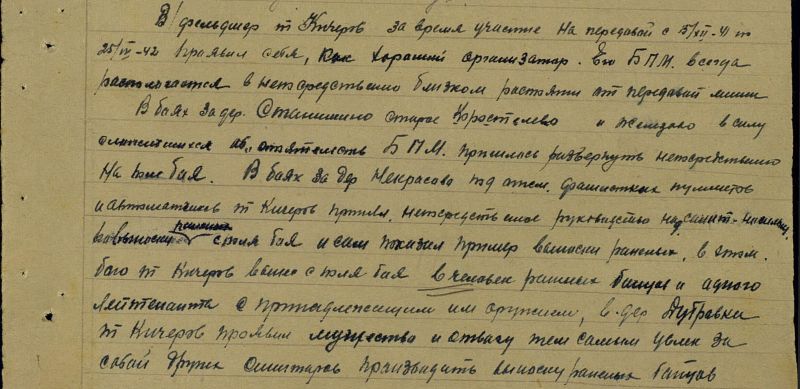 В/фельдшер т Кичеров за время участие На передовой с 5/XII-41 по
25/IV-42 проявил себя, как хорошний организатор. Его Б.П.М. всегда
располагается в непосредственно близком растояни от передовой линии
В боях за дер. Станишино старое Коростелево и Желудово в силу
обстоятельств Б.П.М. пришлось развернуть непосредственно
На поле боя. В боях за дер Некрасово под огнем фашистких пулеметов
и автоматчиков т Кичеров принял непосредственное руководство над санит-носильщ.
раненых с поля боя и сам показал пример выноски раненых, в этом
бою т Кичеров вынес с поля боя 8 человек раненых бойцов и одного
лейтенанта с принадлежащим им оружием, в дер Дубравка
т Кичеров проявил мужество и отвагу тем самым увлек за
собой других санитаров производить выноску раненых бойцов